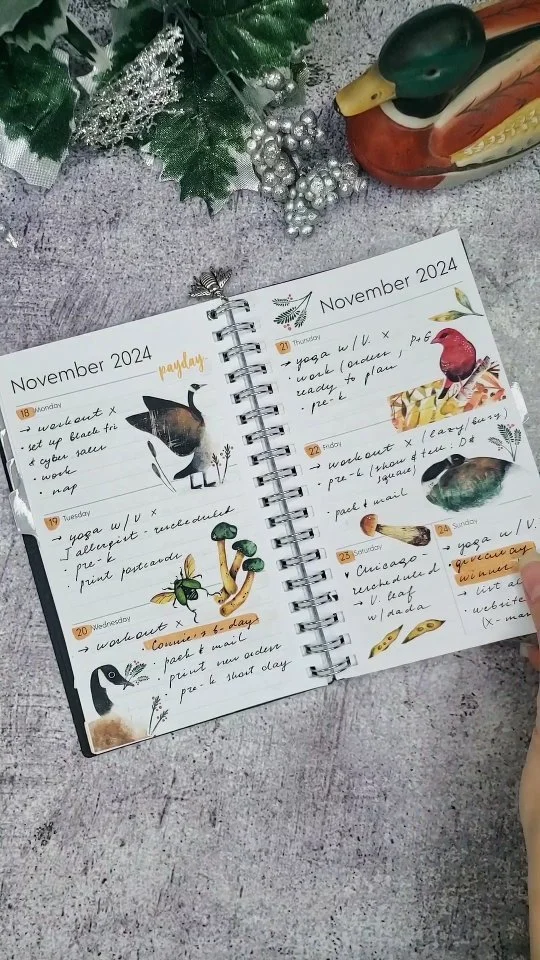 November 2024
payday
18 Monday
→ workout x
set up black fri
& cyber sales
• work
• nap
19 Tuesday
→ yoga w/V. x
I allergist - rescheduled
• pre-k
• print postcards
20 Wednesday
→ workout x
Connie's b-day
• pack & mail
• print new orders
• pre-k short day
November 2024
21 Thursday
→ yoga w/V. x
P+G
• work (orders,
ready to plan
• pre-k
22 Friday
→ workout x (eazy/busy)
• pre-k (show & tell: D&
square)
• pack & mail
23 Saturday
Chicago -
rescheduled
→ V. leaf
w/dada
24 Sunday
→ yoga w/V.
giveaway
winner
• list
• website